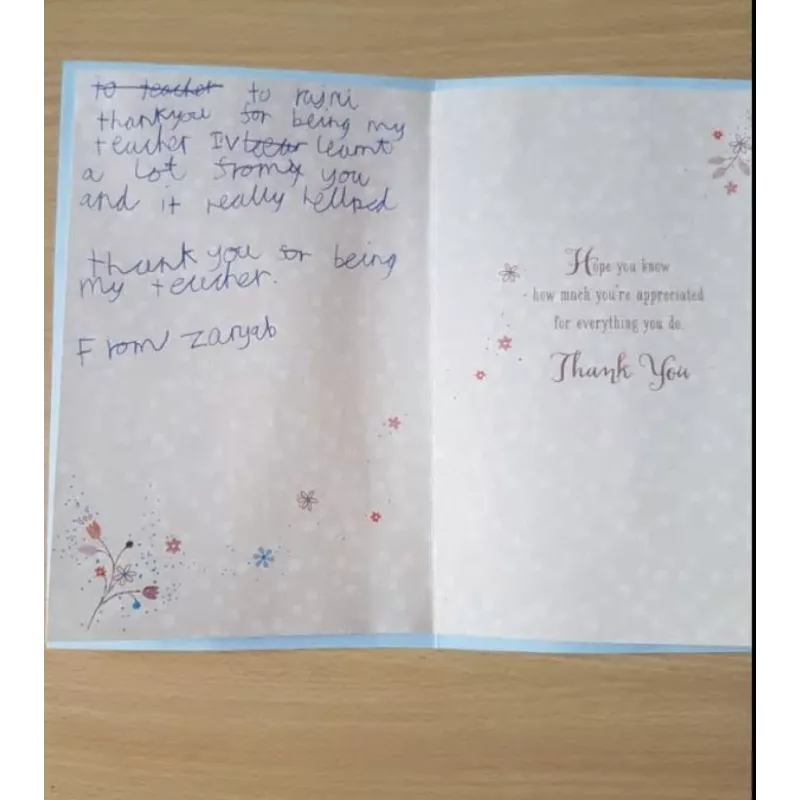 to teacher to rajni
thankyou for being my
teacher IV learnt
a lot from you
and it really hellped
thank you for being
my teacher.
From zaryab
Hope you know
how much you're appreciated
for everything you do.
Thank You